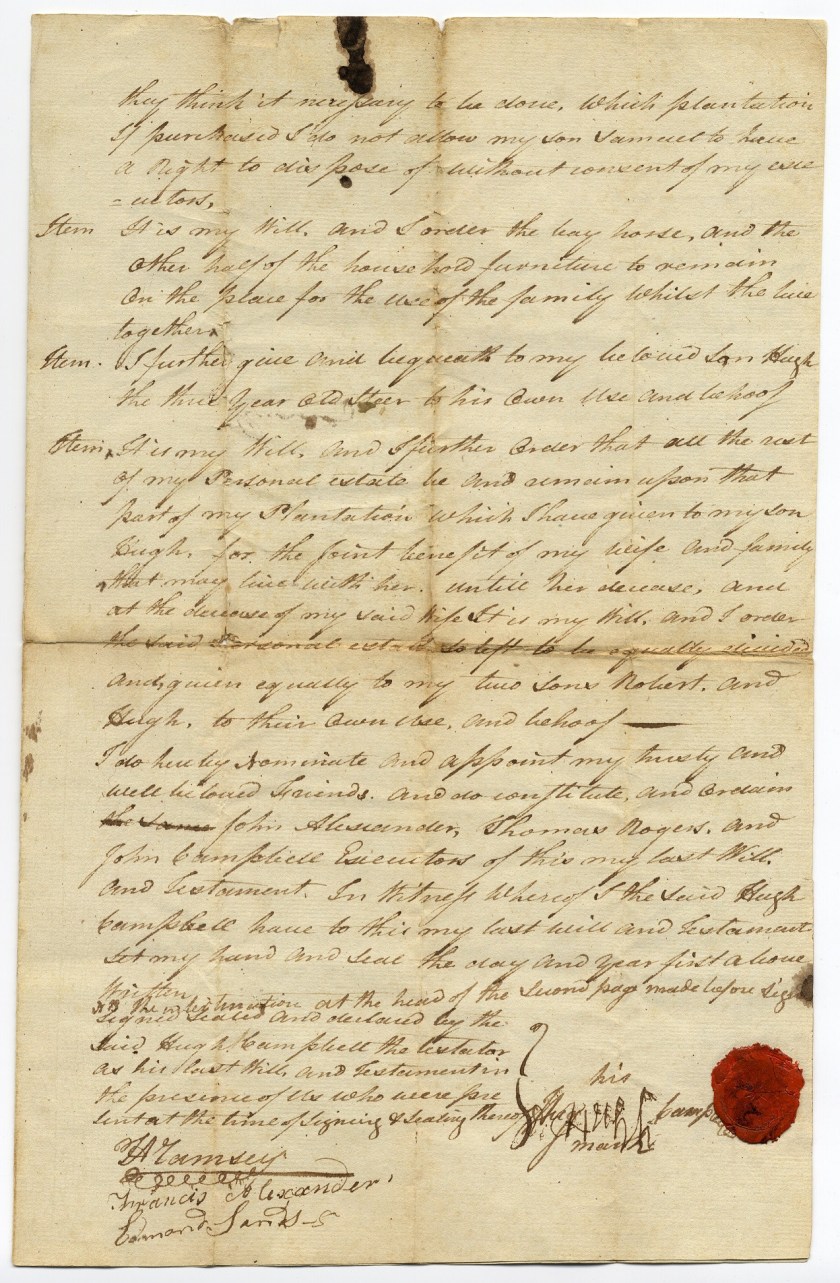 they think it necessary to be done, which plantation
If purchased I do not allow my son Samuel to have
a Right to dispose of without consent of my exe
=cutors,
Item It is my Will, and I order the bay horse, and the
other half of the household furniture to remain
On the place for the use of the family whilst the live
together.
Item. I further give and bequeath to my beloved son Hugh
the three Year Old Steer to his Own Use and behoof
Item, It is my Will, and I further Order that all the rest
of my Personal estate be and remain upon that
part of my Plantation which I have given to my son
Hugh, for the Joint benefit of my Wife and family
that may live with her. untill her decease, and
at the decease of my said Wife It is my Will, and I order
the said Personal estate so left to be equally divided
and given equally to my two sons Robert, and
Hugh, to their Own Use, and behoof —
I do hereby Nominate and appoint my trusty and
well beloved Friends. and do constitute, and Ordain
the same John Alexander, Thomas Rogers, and
John Campbell Executors of this my last Will,
and Testament. In Witness Whereof I the said Hugh
Campbell have to this my last will and Testament
set my hand and seal the day and year first above
Written
the interlineation at the head of the second page made before sign
signed sealed and declared by the
said Hugh Campbell the testator
as his last Will, and Testament in
the presence of Us who were pre
sent at the time of signing & sealing thereof
his
Hugh Campbell
mark
Ramsey
Francis Alexander
Edmond Sands